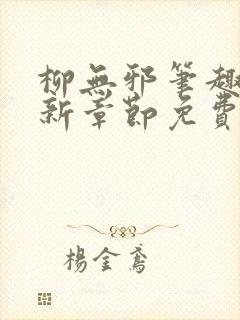 柳無邪筆趣
新章節免費
楊金鳶